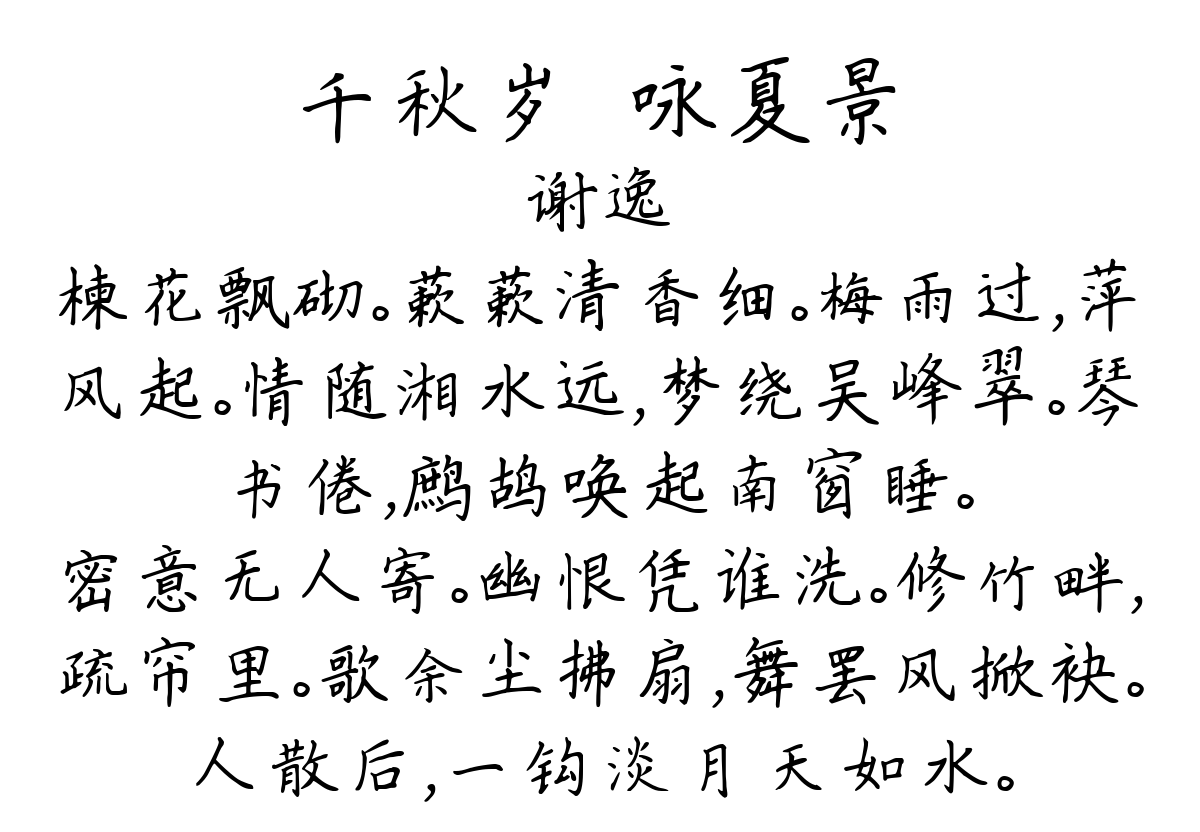 千秋岁 咏夏景
谢逸
楝花飘砌。蔌蔌清香细。梅雨过,萍
风起。情随湘水远,梦绕吴峰翠。琴
书倦,鹧鸪唤起南窗睡。
密意无人寄。幽恨凭谁洗。修竹畔,
疏帘里。歌余尘拂扇,舞罢风掀袂。
人散后,一钩淡月天如水。